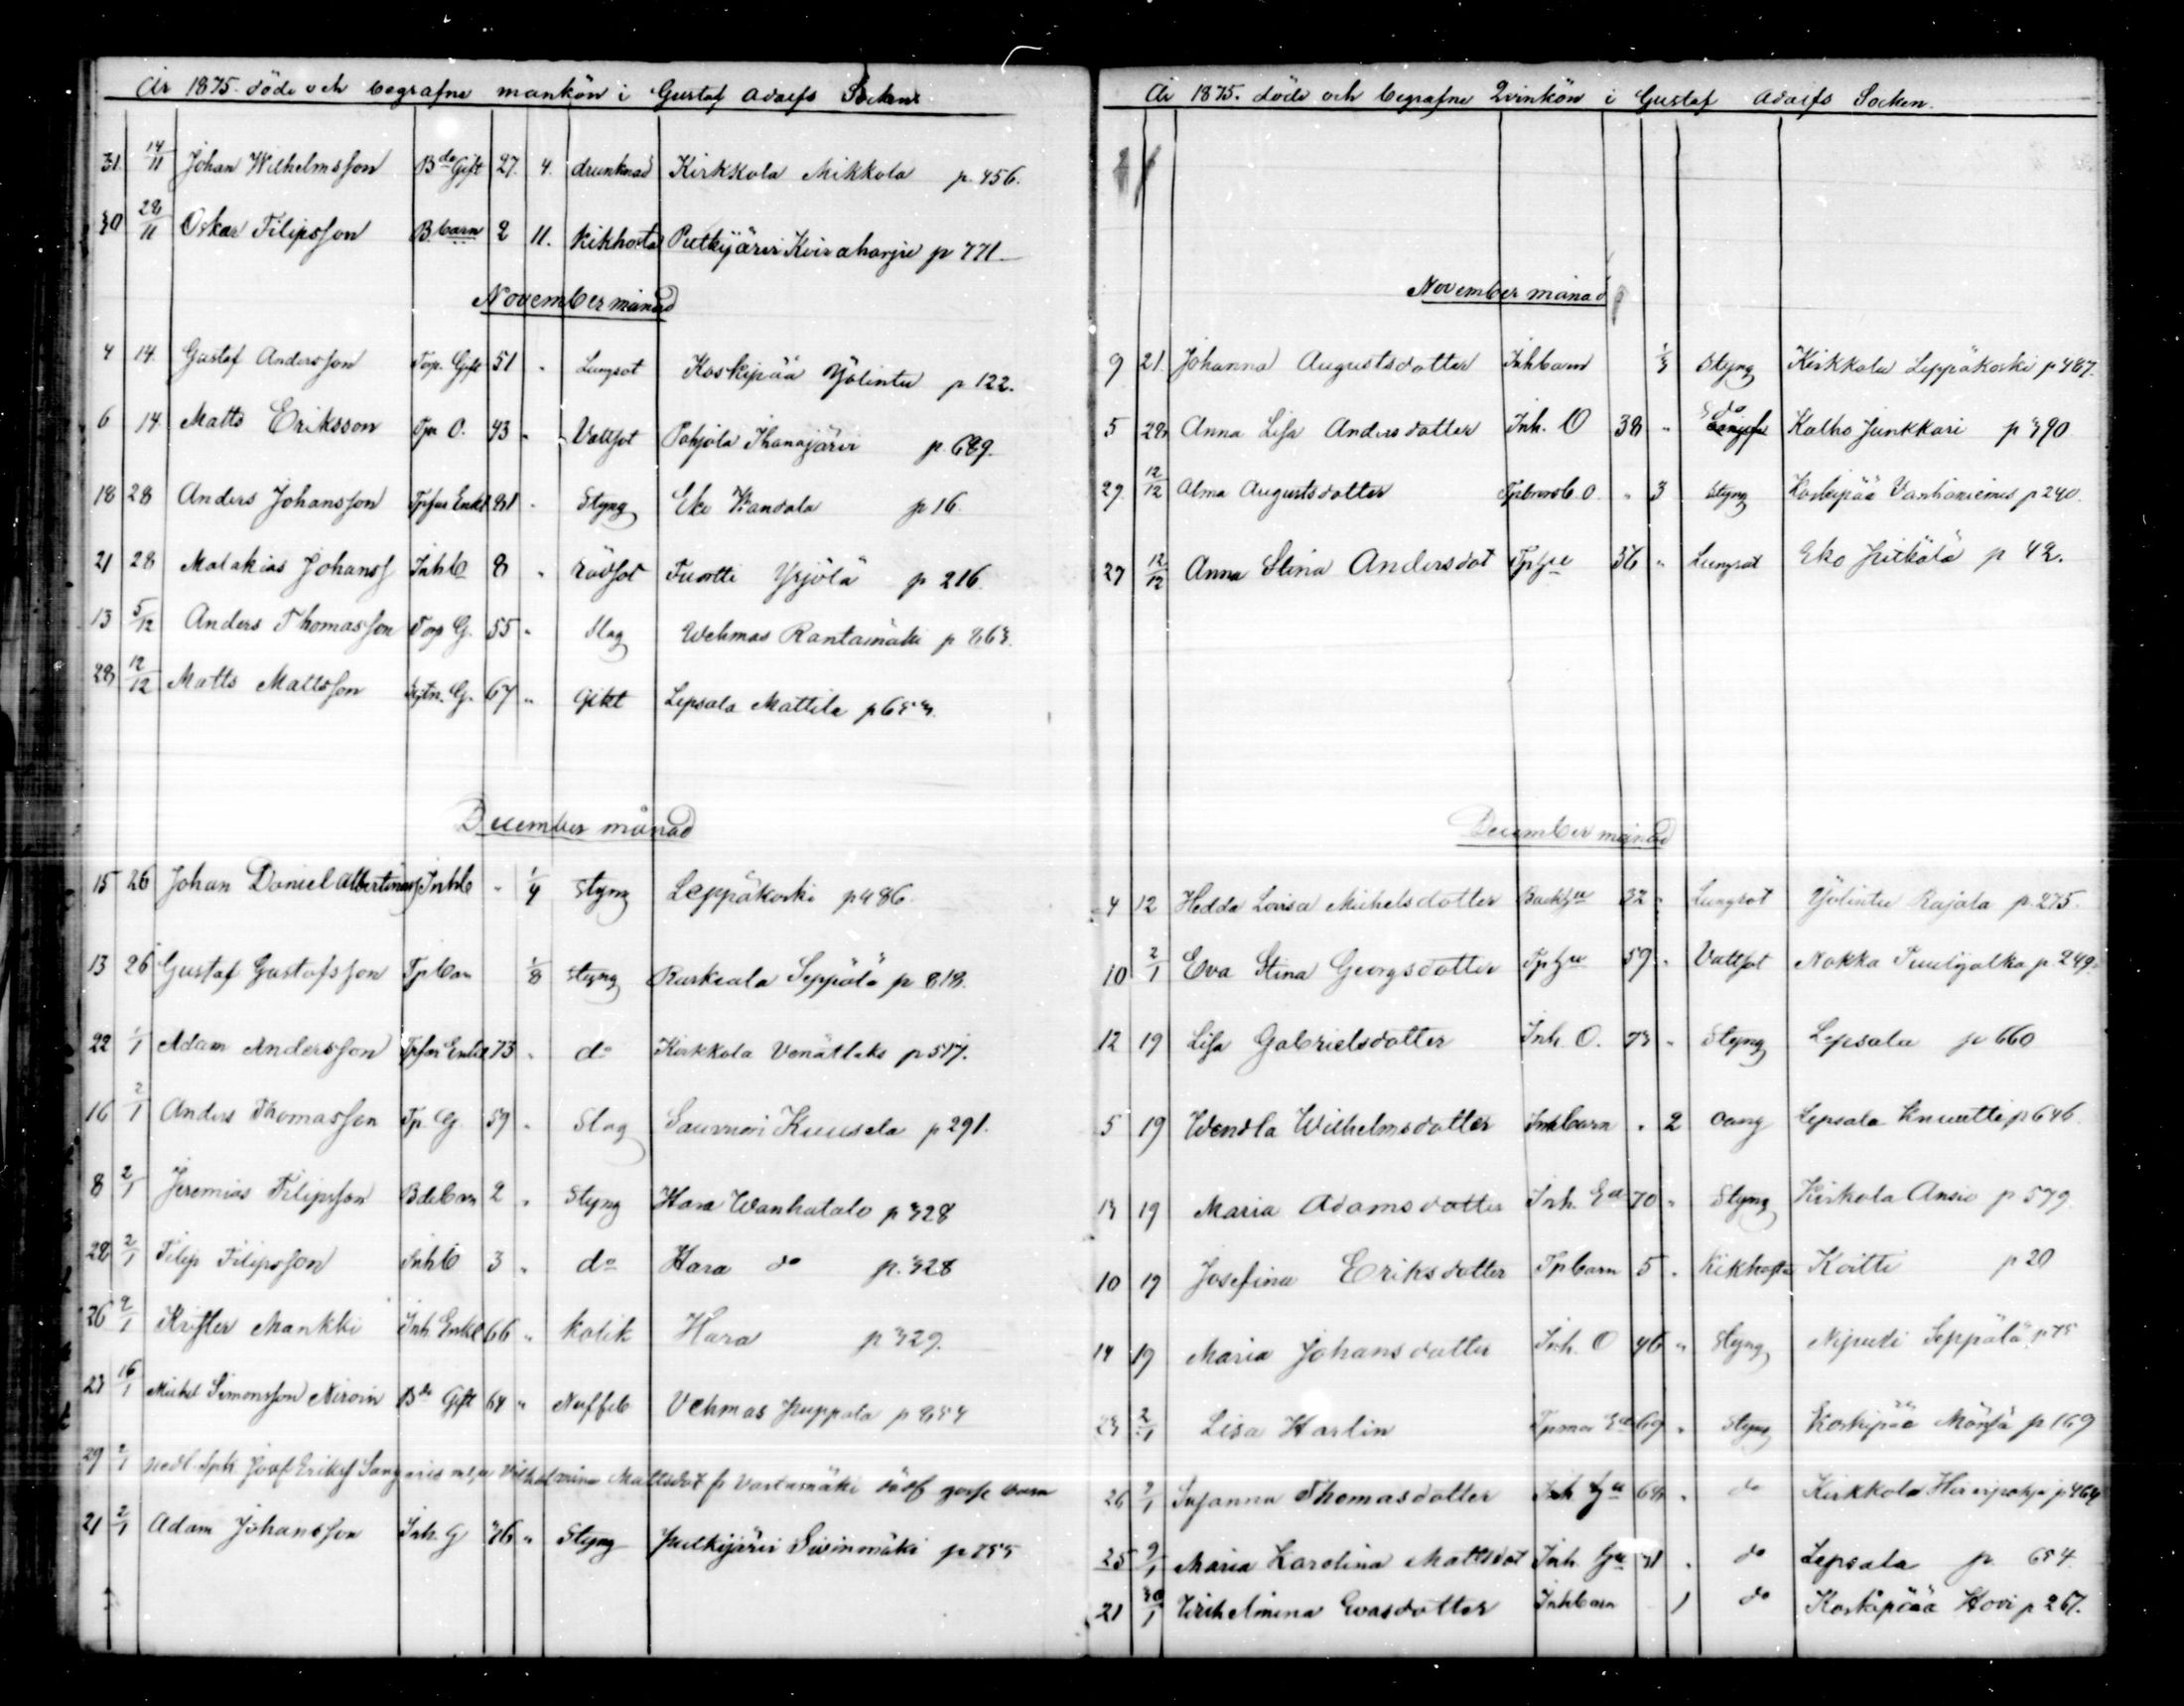 År 1875 döde och begrafne mankön i Gustaf Adolfs Socken
31. 14/11 Johan Wilhelmsson Bde Gift 27. 4. drunknad Kirkkola Mikkola p. 456.
30 28/11 Oskar Filipsson B.barn 2 11. Kikhosta Putkijärvi Koivaharju p 771
November månad
4 14. Gustaf Andersson Torp. Gift 51 " Lungsot Koskipää Yölintu p 122.
6 14. Matts Eriksson Tpr O. 43 " Vattsot Pohjola Ihanajärvi p. 689.
18 28 Anders Johansson Tpfar Enkl 81 " Styng Eko Kandola p 16.
21 28 Malakias Johanss Inhb 8 " rödsot Fuortti Yrjölä p 216.
13 5/12 Anders Thomasson Torp G. 55 " Slag Wehmas Rantamäki p 863.
28 12/12 Matts Mattsson G. 67 " Gikt Lepsala Mattila p 653.
December månad
15 26 Johan Daniel Albertinas Inhb " 1/4 Styng Leppäkoski p 486.
13 26 Gustaf Gustafsson Tpbarn 1/8 Styng Ruskeala Seppälä p 818.
22 1/1 Adam Andersson Tpfar Enkl 73 " do Kirkkola p 517.
16 2/1 Anders Thomasson Tp. G. 59 " Slag Kuusela p 291.
8 2/1 Jeremias Filipsson Bdebarn 2 " Styng Hara Wanhatalo p 328
28 2/1 Filip Filipsson Inhb 3 " do Hara do p. 328
26 2/1 Krister Mankki Inh Enkl 66 " kolik Hara p 329.
23 16/1 Michel Simonsson Bde Gift 64 " Vehmas Puppola p 854
29 2/1 Joos Eriks Wilhelmina Mattsdot fr Vartiamäki dödf gosse barn
21 2/1 Adam Johansson Inh. G 76 " Styng Putkijärvi p 755
År 1875. döde och begrafne Qvinkön i Gustaf Adolfs Socken.
November månad
9 21. Johanna Augustsdotter Inhbarn 1/3 Styng Kirkkola Leppäkoski p 487.
5 28 Anna Lisa Andersdotter Inh. O 38 " do Kalho Junkkari p 390
29. 12/12 Alma Augustsdotter O. " 3 Styng Koskipää Vanhaniemi p 240.
27 12/12 Anna Stina Andersdot Tpgu 36 " Lungsot Eko Pitkälä p 42.
December månad
4 12 Hedda Lovisa Michelsdotter Backgu 32 " Lungsot Yölintu Rajala p. 275.
10 2/1 Eva Stina Georgsdotter Tpgu 59 " Vattsot Nokka p. 249.
12 19 Lisa Gabrielsdotter Inh O. 73 " Styng Lepsala p 660
5 19 Wendla Wilhelmsdotter Inhbarn " 2 oang Lepsala Knuutti p 646.
13 19 Maria Adamsdotter Inh. Ea 70 " Styng Kirkola Ansio p 579
10 19 Josefina Eriksdotter Tpbarn 5 " Kikhosta Koitti p 20
14 19 Maria Johansdotter Inh. O 46 " Styng Nipuli Seppälä p 75
23 2/1 Lisa Harlin Tpmor Ea 69 " Styng Koskipää Mönsä p 169
26 2/1 Susanna Thomasdotter Inh gu 68 " do Kirkkola Hirvipohja p 464
25 9/1 Maria Karolina Mattsdot Inh. gu 31 " do Lepsala p. 654.
21 30/1 Wilhelmina Evasdotter Inhbarn 1 do Koskipää Hovi p 267.